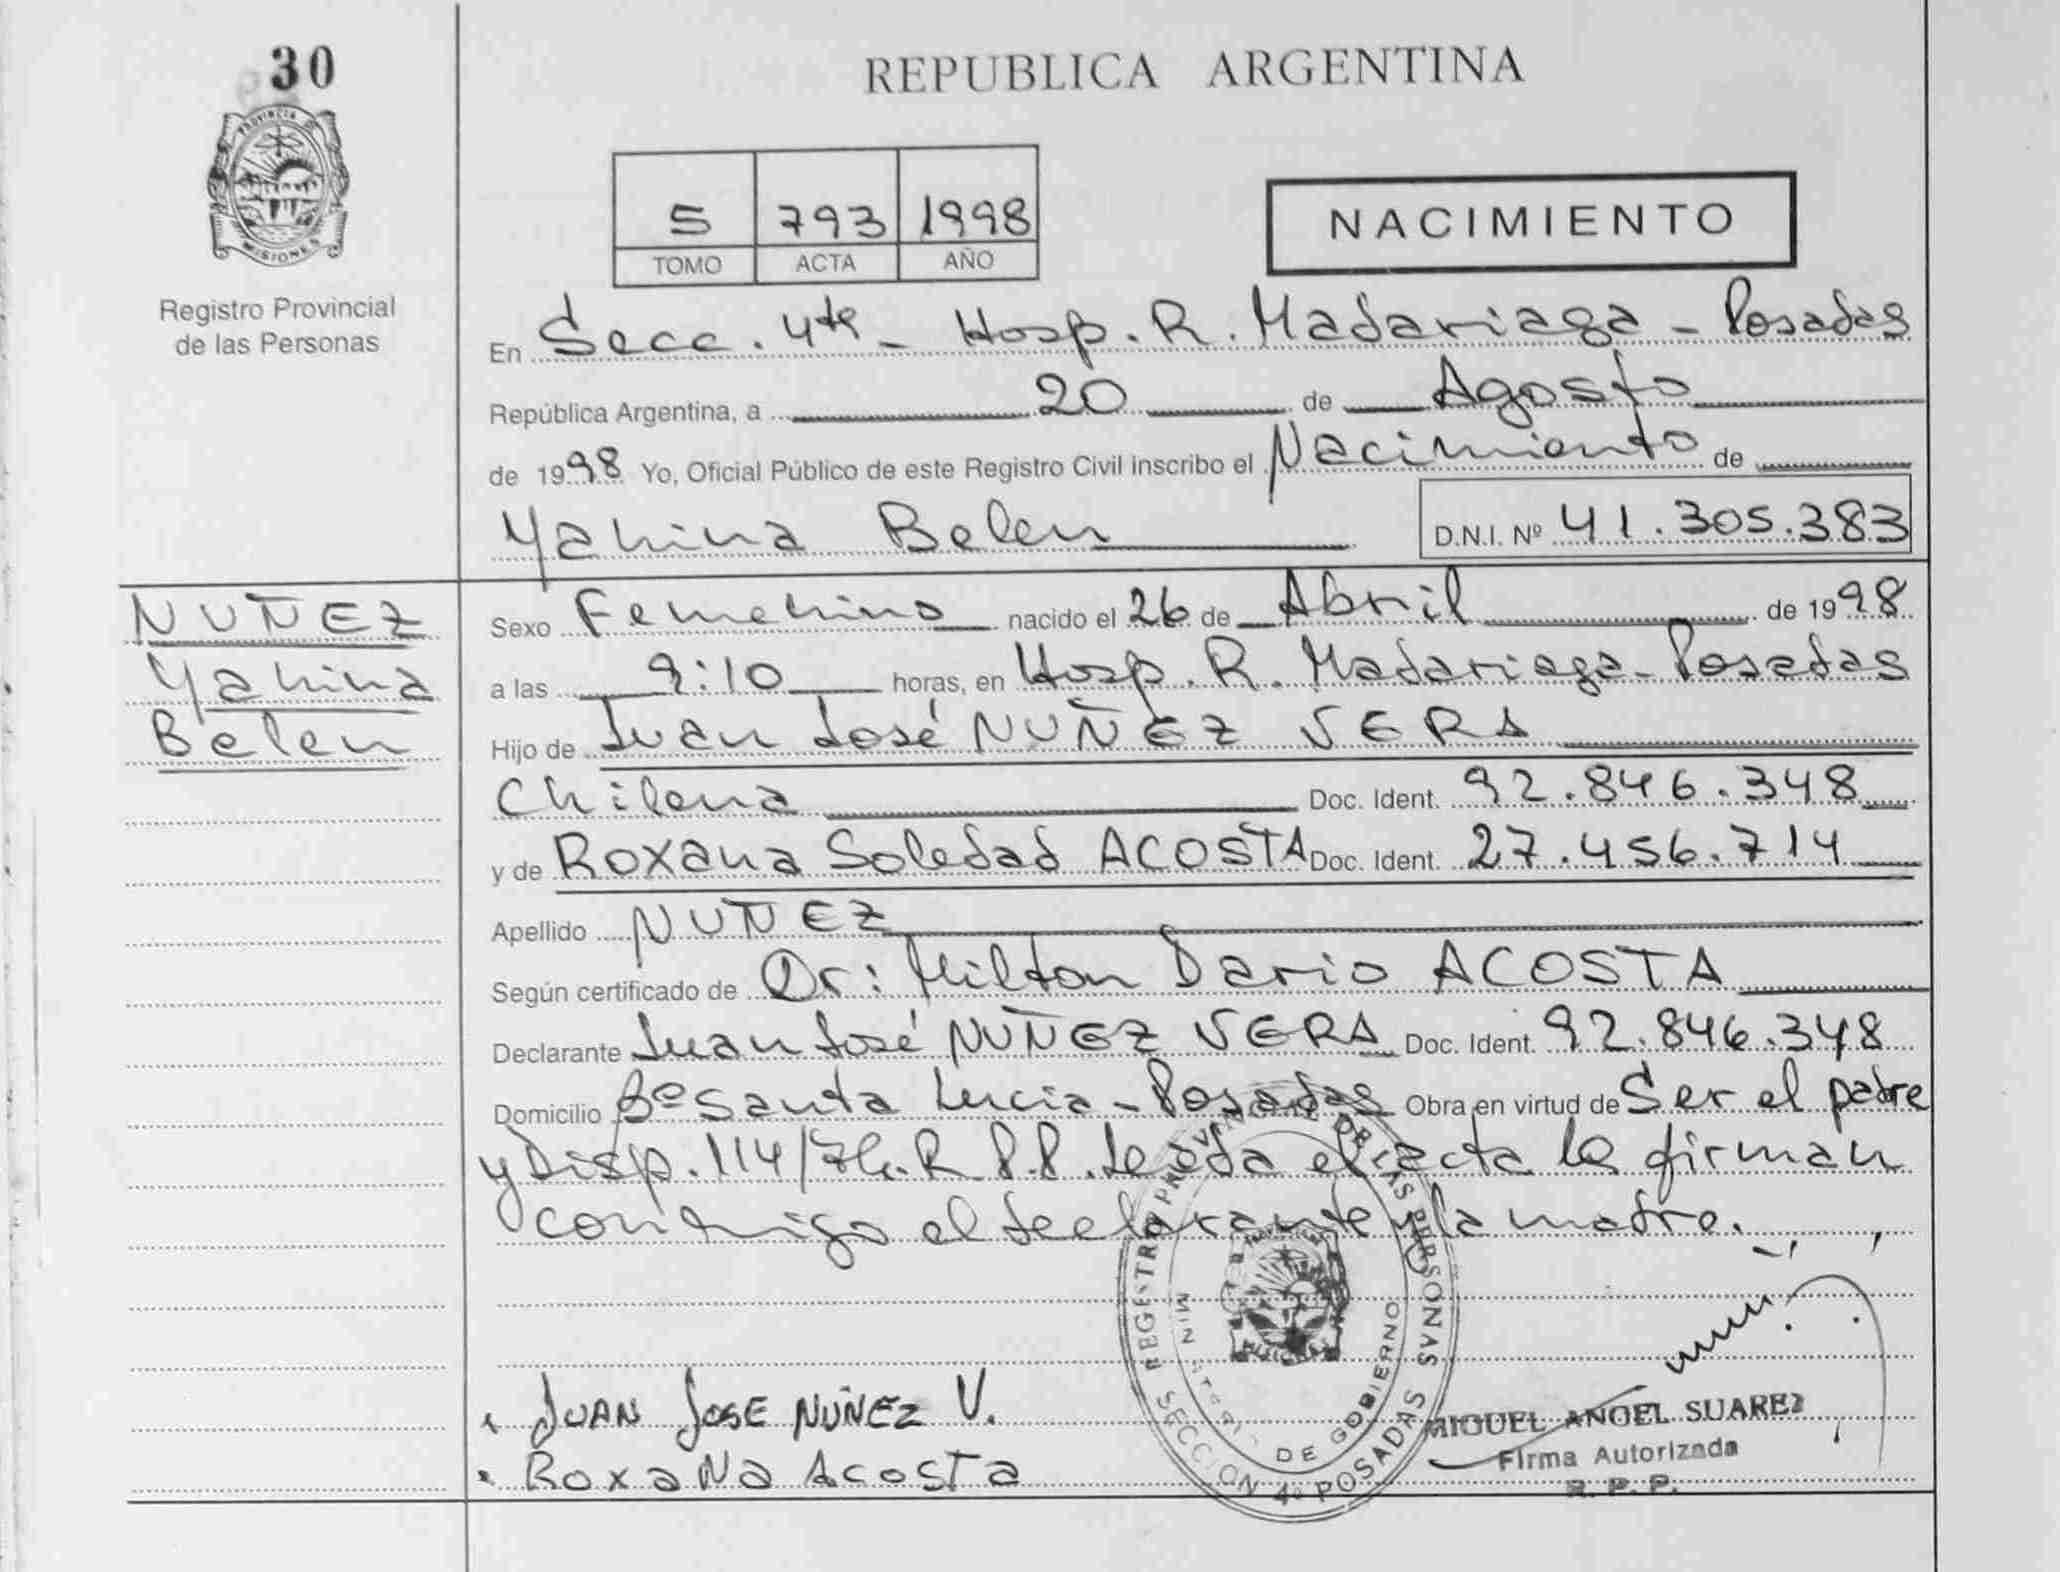 30
PROVINCIA DE
MISIONES
Registro Provincial
de las Personas
REPUBLICA ARGENTINA
5 793 1998
TOMO ACTA AÑO
NACIMIENTO
En Secc. 4ta - Hosp. R. Madariaga - Posadas
República Argentina, a 20 de Agosto
de 1998 Yo, Oficial Público de este Registro Civil inscribo el Nacimiento de
Yanina Belen D.N.I. Nº 41.305.383
NUÑEZ
Yanina
Belen
Sexo Femenino nacido el 26 de Abril de 1998
a las 9:10 horas, en Hosp. R. Madariaga - Posadas
Hijo de Juan José NUÑEZ VERA
Chilena Doc. Ident. 92.846.348
y de Roxana Soledad ACOSTA Doc. Ident. 27.456.714
Apellido NUÑEZ
Según certificado de Dr: Milton Dario ACOSTA
Declarante Juan José NUÑEZ VERA Doc. Ident. 92.846.348
Domicilio Bº Santa Lucia - Posadas Obra en virtud de Ser el padre
y Disp. 114/ R.P.P. Leída el acta la firman
conmigo el declarante y la madre.
REGISTRO PROVINCIAL DE LAS PERSONAS
MINISTERIO DE GOBIERNO
SECCION 4º POSADAS
JUAN JOSE NUÑEZ V.
ROXANA ACOSTA
MIGUEL ANGEL SUAREZ
Firma Autorizada
R. P. P.